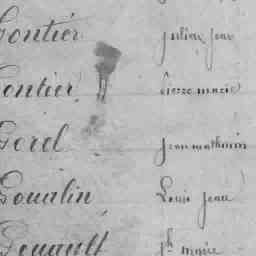 Gontier Julien Jean
Gontier Pierre marie
Gorel Jean mathurin
Goualin Louis Jean
Gouault Jh marie